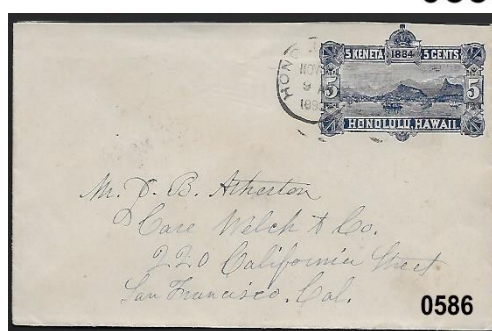 5 KENETA 1884 5 CENTS
5 5
HONOLULU, HAWAII.
NOV
9 A
189
Mr. D. B. Atherton
Care Welch & Co.
220 California Street
San Francisco, Cal.
0586